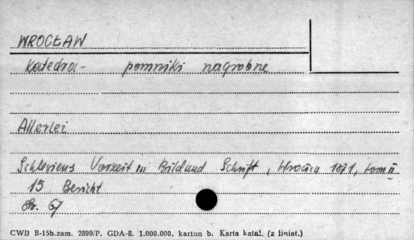 WROCŁAW
Katedra - pomniki nagrobne
Allerlei
Schlesiens Vorzeit in Bild und Schrift, Wrocław 1871, tom II
15 Bericht
Nr. 67
CWB B-15b.zam. 2899/P. GDA-8. 1.000.000. karton b. Karta katal. (z liniat.)